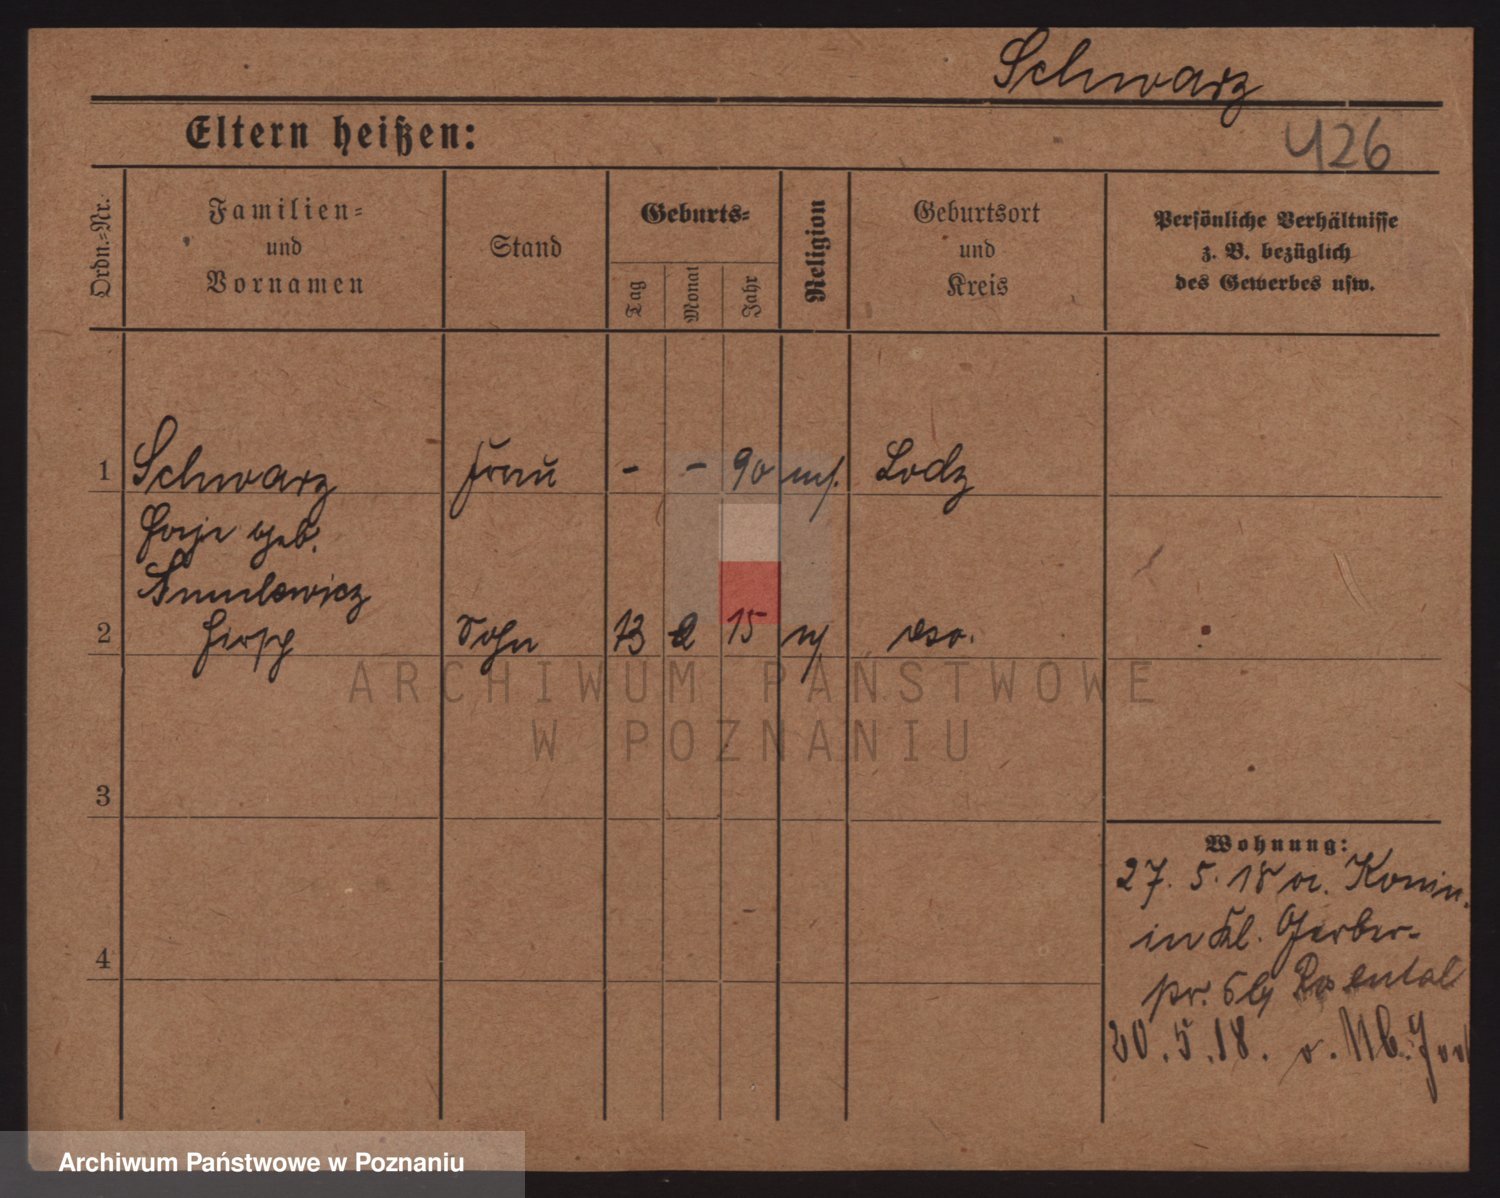 Schwarz
Eltern heißen:
426
Ordn.-Nr.
Familien-
und
Vornamen
Stand
Geburts-
Tag
Monat
Jahr
Religion
Geburtsort
und
Kreis
Persönliche Verhältnisse
z. B. bezüglich
des Gewerbes usw.
1 Schwarz Frau - - 90 mos. Lodz
geb.
2 Hirsch Sohn 13 2 15 dso.
3
4
Wohnung:
27. 5. 18 Konin
in Kl. Gerber-
Rosental
20. 5. 18. v.
ARCHIWUM PAŃSTWOWE
W POZNANIU
Archiwum Państwowe w Poznaniu